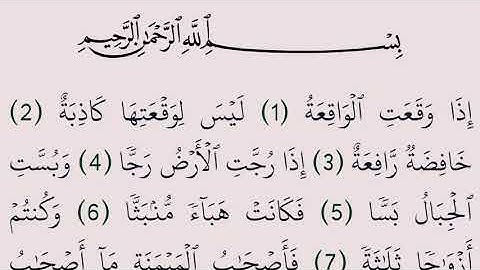 بِسْمِ ٱللَّهِ ٱلرَّحْمَٰنِ ٱلرَّحِيمِ
إِذَا وَقَعَتِ ٱلْوَاقِعَةُ (1) لَيْسَ لِوَقْعَتِهَا كَاذِبَةٌ (2)
خَافِضَةٌ رَّافِعَةٌ (3) إِذَا رُجَّتِ ٱلْأَرْضُ رَجًّا (4) وَبُسَّتِ
ٱلْجِبَالُ بَسًّا (5) فَكَانَتْ هَبَآءً مُّنۢبَثًّا (6) وَكُنتُمْ
أَزْوَٰجًا ثَلَٰثَةً (7) فَأَصْحَٰبُ ٱلْمَيْمَنَةِ مَآ أَصْحَٰبُ